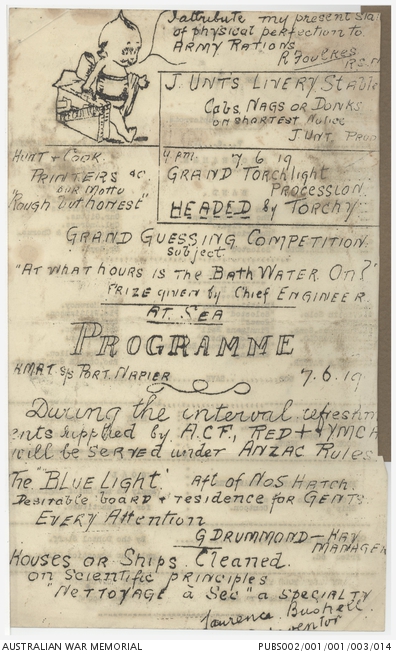 I attribute my present stat
of physical perfection to
ARMY RATIONS
R Foulkes
J. UNTS LIVERY STABLE
Cabs, NAGS OR DONKS
on shortest notice
J UNT PROP
HUNT & COOK
PRINTERS &c
our motto
"ROUGH but honest"
4 p.m. 7 6 19
GRAND TORCHLIGHT
PROCESSION
HEADED by TORCHY
GRAND GUESSING COMPETITION
subject
"AT WHAT HOURS IS THE BATH WATER ON?"
PRIZE given by Chief ENGINEER.
AT. SEA
PROGRAMME
HMAT S/S PORT NAPIER 7.6.19
During the interval refreshm
ents supplied by A.C.F., RED + & YMCA
will be served under ANZAC Rules
The "BLUE LIGHT" Aft of No5 HATCH.
Desirable board & residence for GENTS
EVERY Attention
G DRUMMOND-HAY
MANAGER
Houses or Ships Cleaned.
on scientific principles
"NETTOYAGE à Sec" a SPECIALTY
Laurence Bushell.
AUSTRALIAN WAR MEMORIAL PUBS002/001/001/003/014